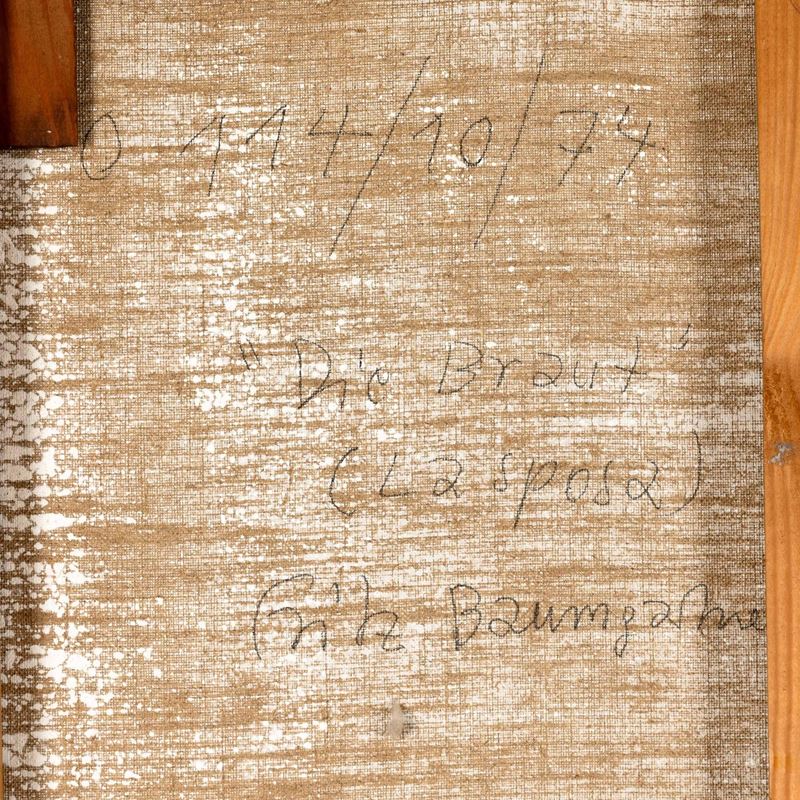 0 114/10/74
"Die Braut"
(La sposa)
Fritz Baumgartne